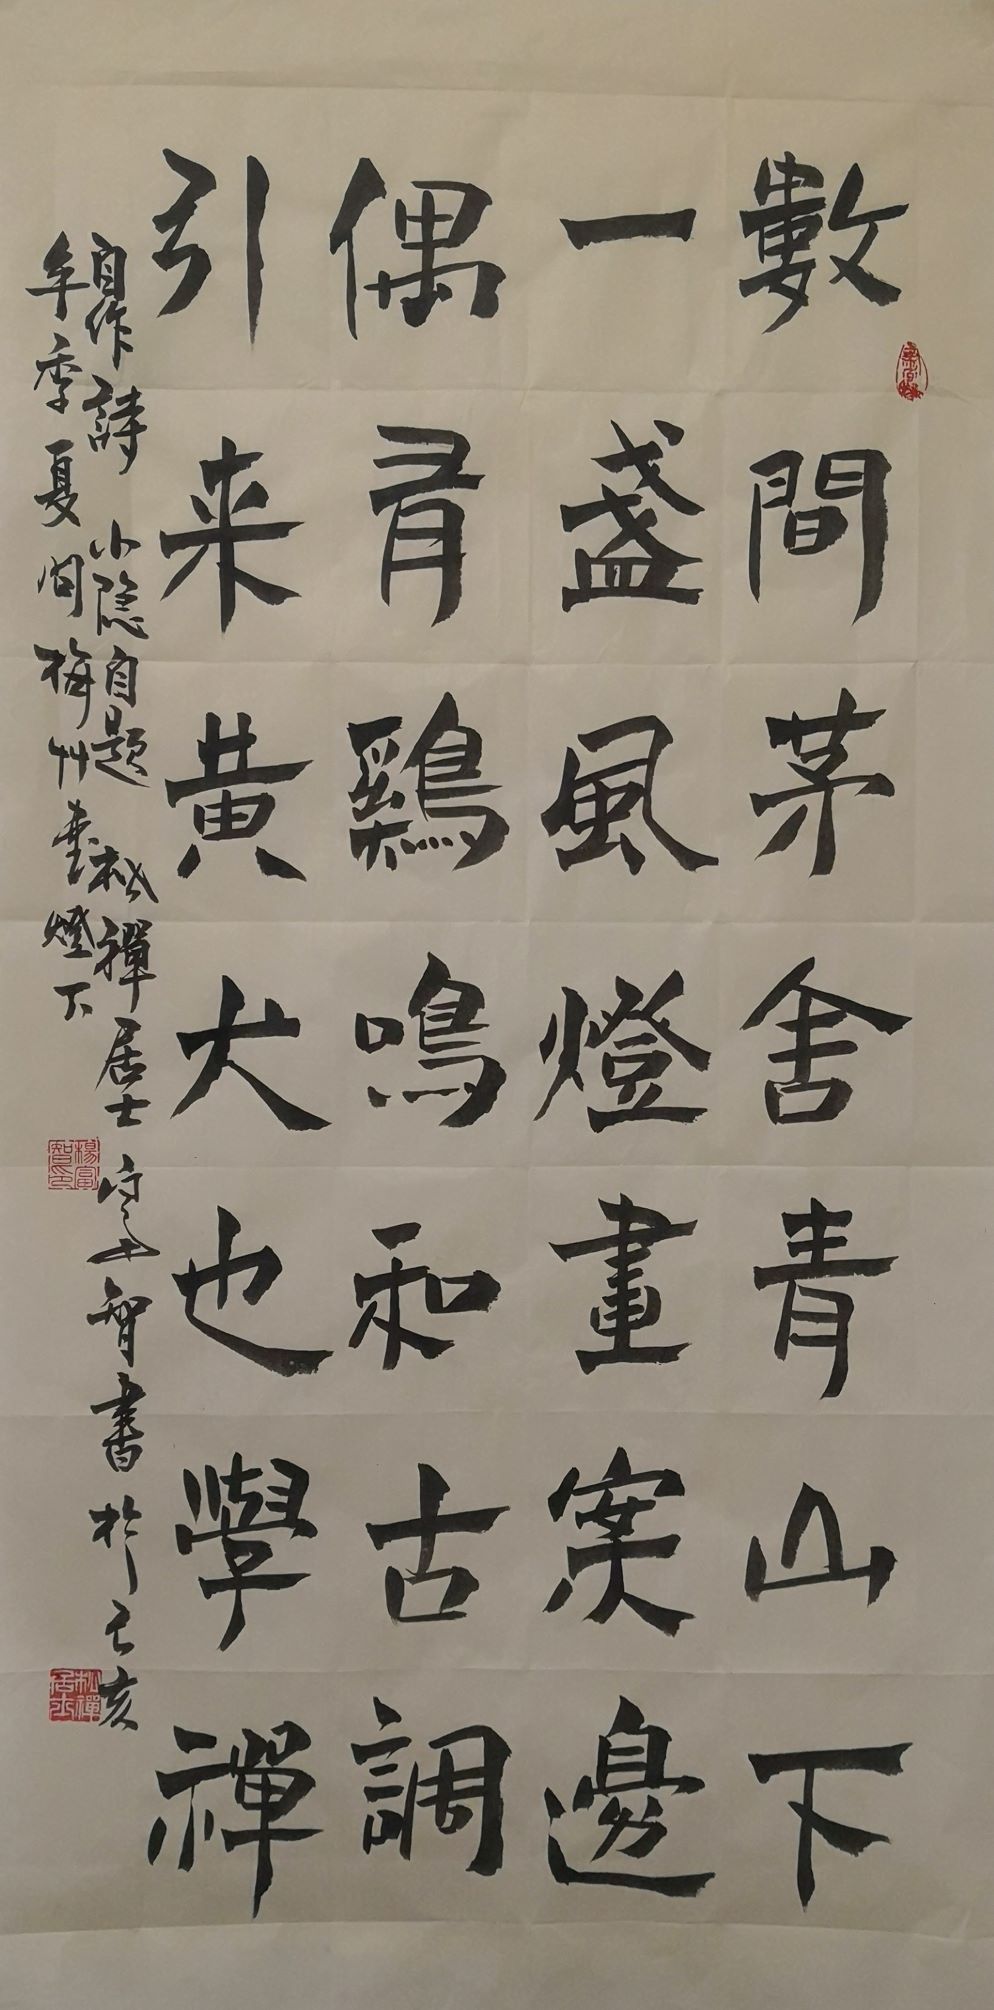 數間茅舍青山下
一盞風燈畫案邊
偶有鷄鳴和古調
引来黄犬也學禪
自作詩 小隐自題 松禪居士 智書於己亥
年季夏问梅竹畫燈下
楊富智印
松禪居士